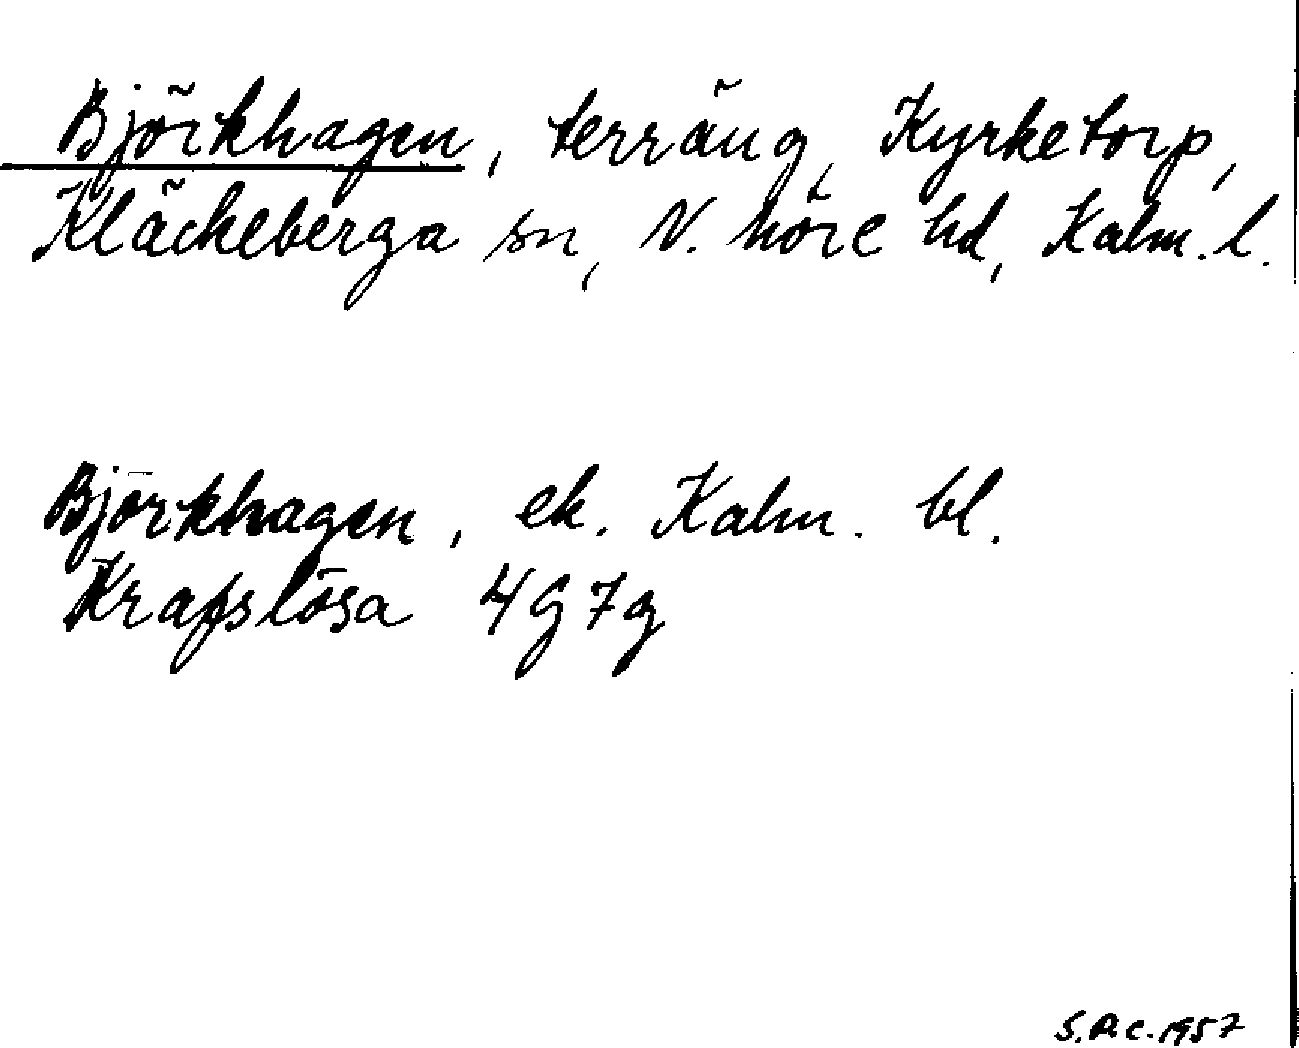 Björkhagen, terräng, Kyrketorp,
Kläckeberga sn, N. Möre hd, Kalm. l.
Björkhagen, ek. Kalm. bl.
Krafslösa 4G7g
S.P.C. 1957